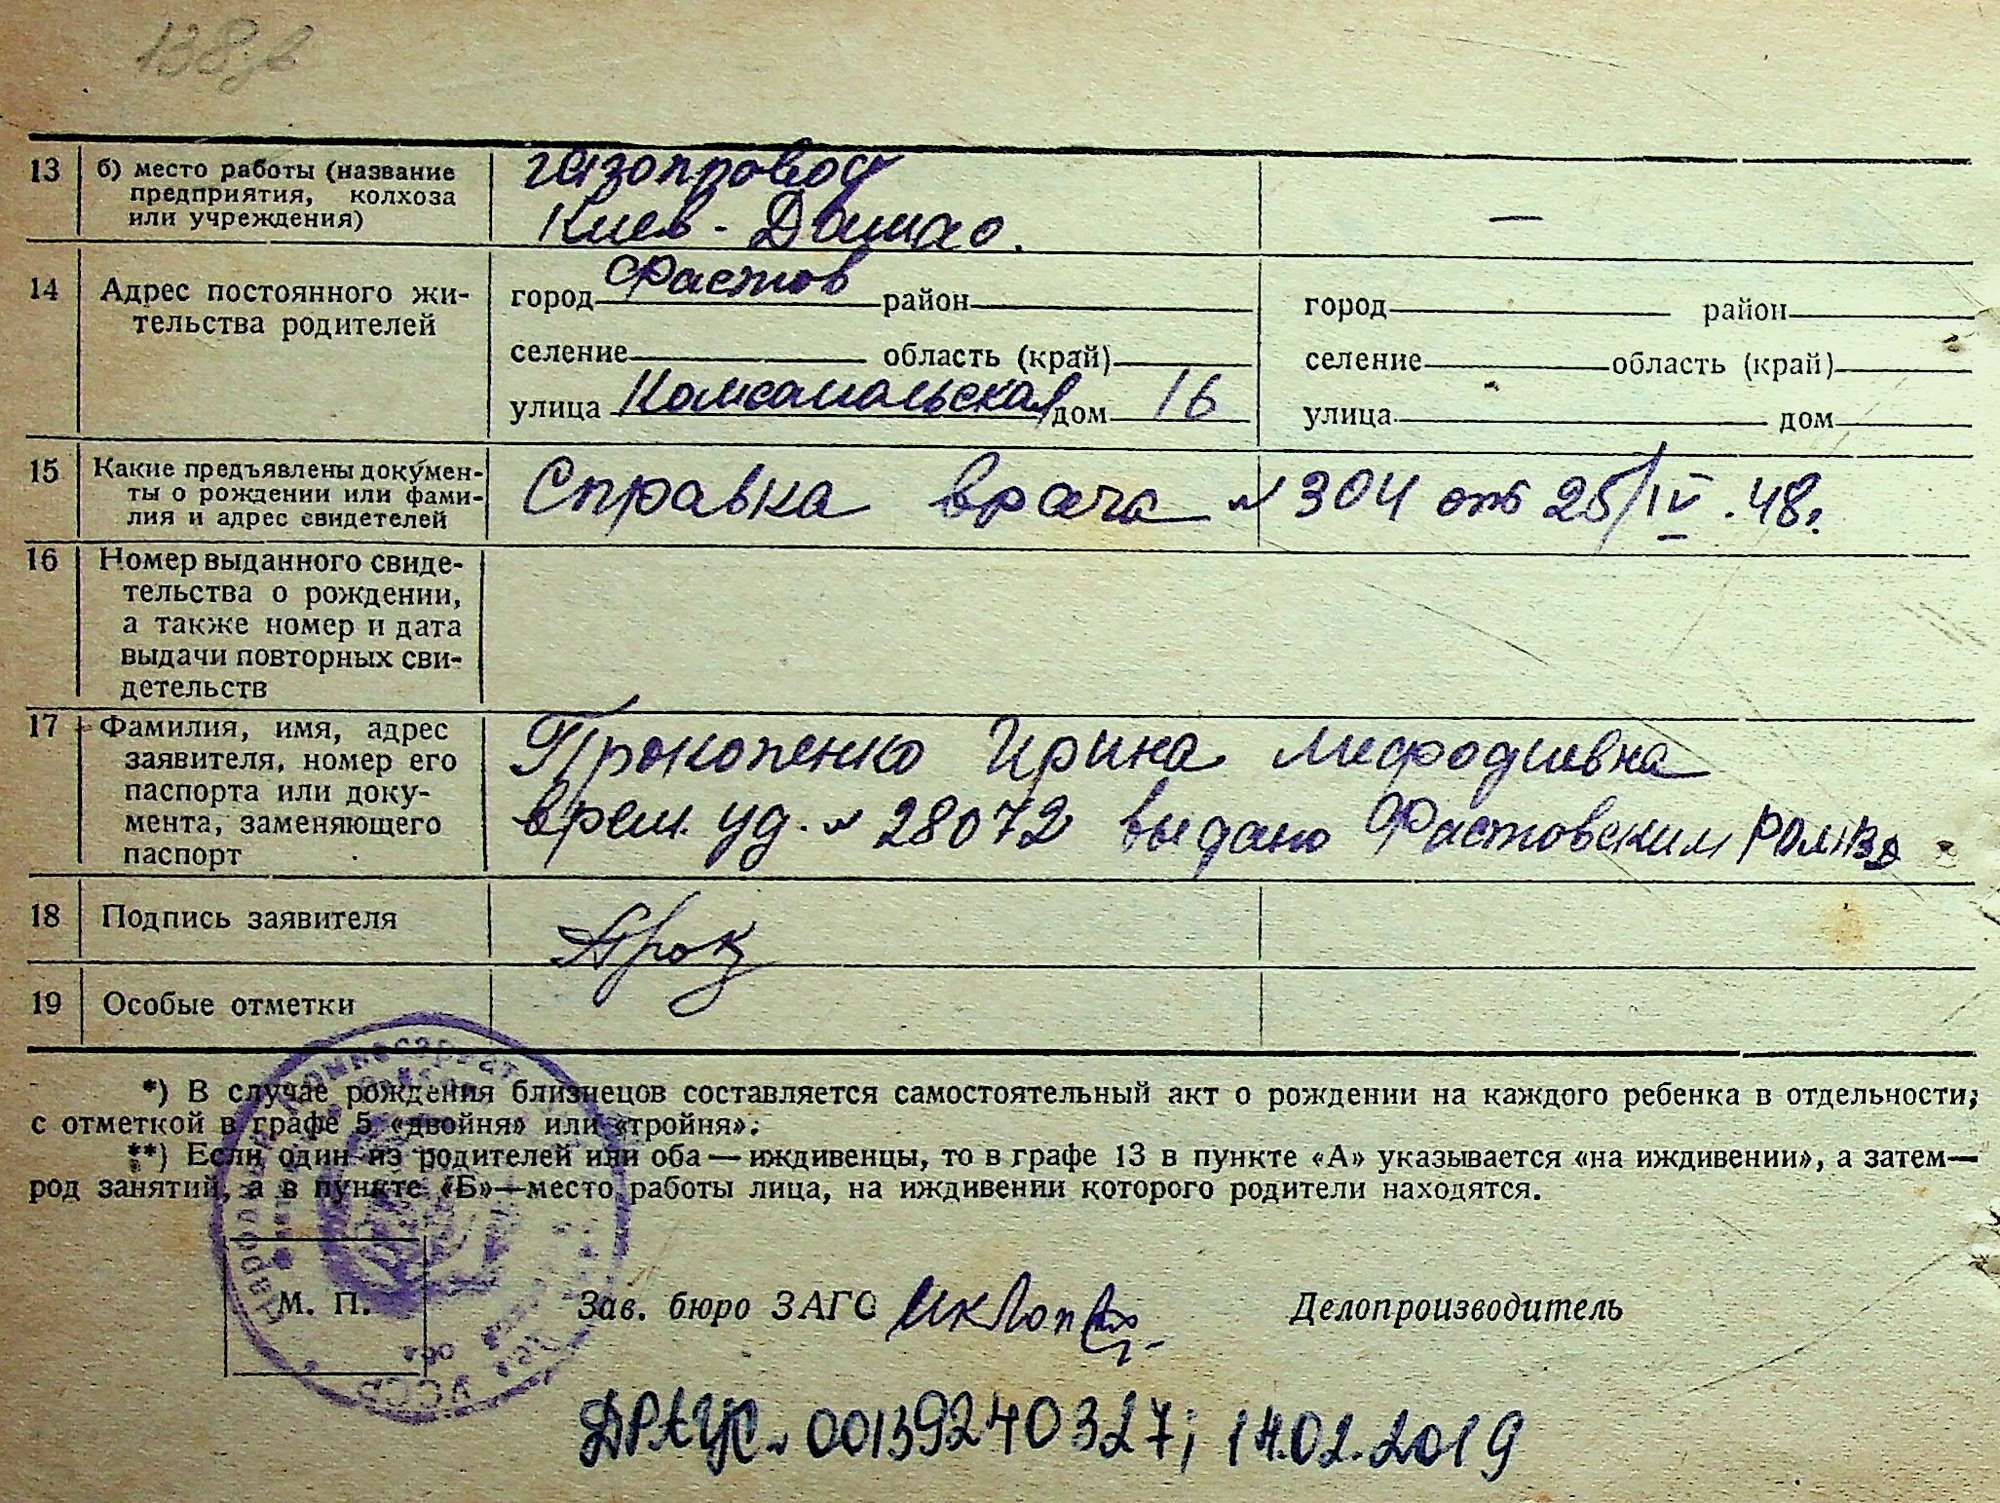 138
13 б) место работы (название газопровод —
предприятия, колхоза
или учреждения) Киев - Дашао.
14 Адрес постоянного жи- город Фастов район город район
тельства родителей
селение область (край) селение область (край)
улица Комсамальская дом 16 улица дом
15 Какие предъявлены докумен-
ты о рождении или фами- Справка врача № 304 от 25/IV. 48г.
лия и адрес свидетелей
16 Номер выданного свиде-
тельства о рождении,
а также номер и дата
выдачи повторных сви-
детельств
17 Фамилия, имя, адрес Прокопенко Ирина Мефодиевна
заявителя, номер его
паспорта или доку-
мента, заменяющего врем. уд. № 28072 выдано Фастовским
паспорт
18 Подпись заявителя
19 Особые отметки
*) В случае рождения близнецов составляется самостоятельный акт о рождении на каждого ребенка в отдельности;
с отметкой в графе 5 «двойня» или «тройня».
**) Если один из родителей или оба — иждивенцы, то в графе 13 в пункте «А» указывается «на иждивении», а затем—
род занятий, а в пункте «Б»—место работы лица, на иждивении которого родители находятся.
М. П. Зав. бюро ЗАГС Делопроизводитель
УССР
ДРАЦС № 00139240327; 14.02.2019